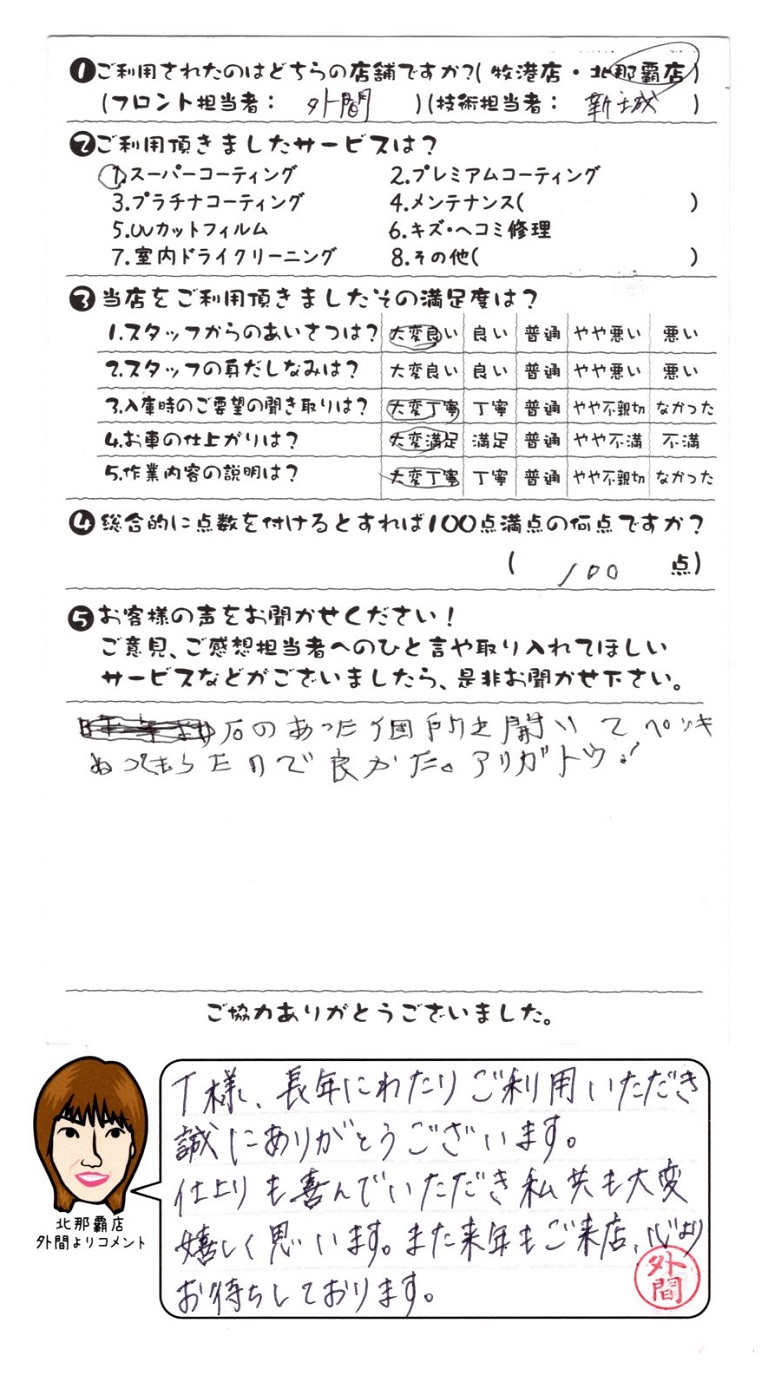 ❶ご利用されたのはどちらの店舗ですか?(牧港店・北那覇店)
(フロント担当者: 外間 )(技術担当者: 新城 )
❷ご利用頂きましたサービスは?
1.スーパーコーティング 2.プレミアムコーティング
3.プラチナコーティング 4.メンテナンス( )
5.UVカットフィルム 6.キズ・ヘコミ修理
7.室内ドライクリーニング 8.その他( )
❸当店をご利用頂きましたその満足度は?
1.スタッフからのあいさつは? 大変良い 良い 普通 やや悪い 悪い
2.スタッフの身だしなみは? 大変良い 良い 普通 やや悪い 悪い
3.入庫時のご要望の聞き取りは? 大変丁寧 丁寧 普通 やや不親切 なかった
4.お車の仕上がりは? 大変満足 満足 普通 やや不満 不満
5.作業内容の説明は? 大変丁寧 丁寧 普通 やや不親切 なかった
❹総合的に点数を付けるとすれば100点満点の何点ですか?
( 100 点)
❺お客様の声をお聞かせください!
ご意見、ご感想担当者へのひと言や取り入れてほしい
サービスなどがございましたら、是非お聞かせ下さい。
石のあった個所を開いてペンキ
ぬってもらたので良かた。アリガトウ!
ご協力ありがとうございました。
T様、長年にわたりご利用いただき
誠にありがとうございます。
仕上りも喜んでいただき私共も大変
嬉しく思います。また来年もご来店、心より
お待ちしております。
外間
北那覇店
外間よりコメント